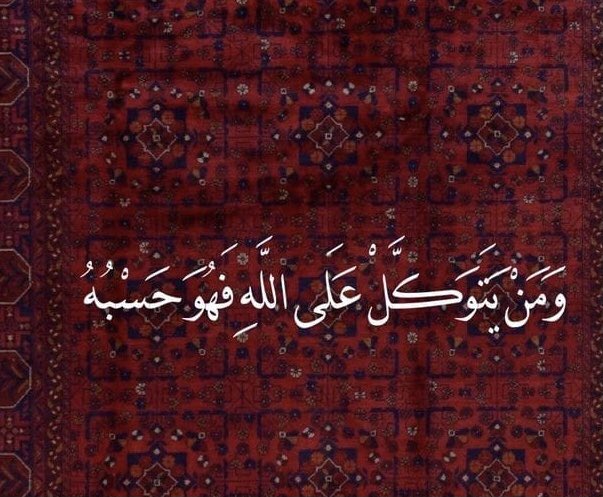 وَمَنْ يَتَوَكَّلْ عَلَى اللَّهِ فَهُوَ حَسْبُهُ